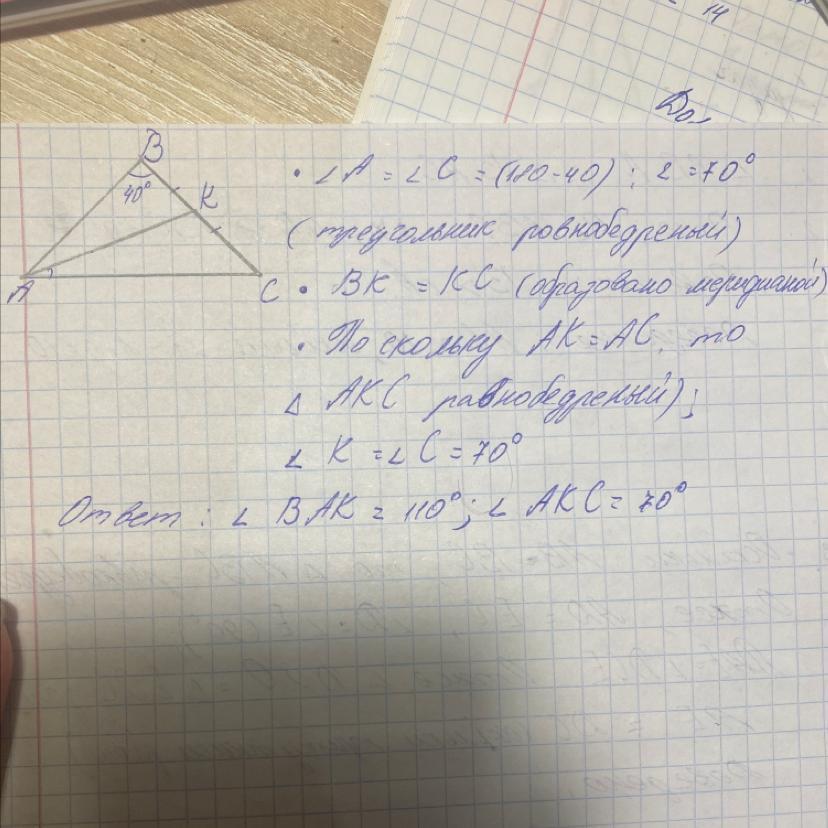 14
До
B
40°
K
A
C
• ∠A = ∠C = (180-40) : 2 = 70°
(треугольник ровнобедреный)
• BK = KC (образовано меридианой)
• Поскольку AK = AC, то
△ AKC равнобедреный);
∠ K = ∠ C = 70°
Ответ : ∠ BAK = 110°; ∠ AKC = 70°